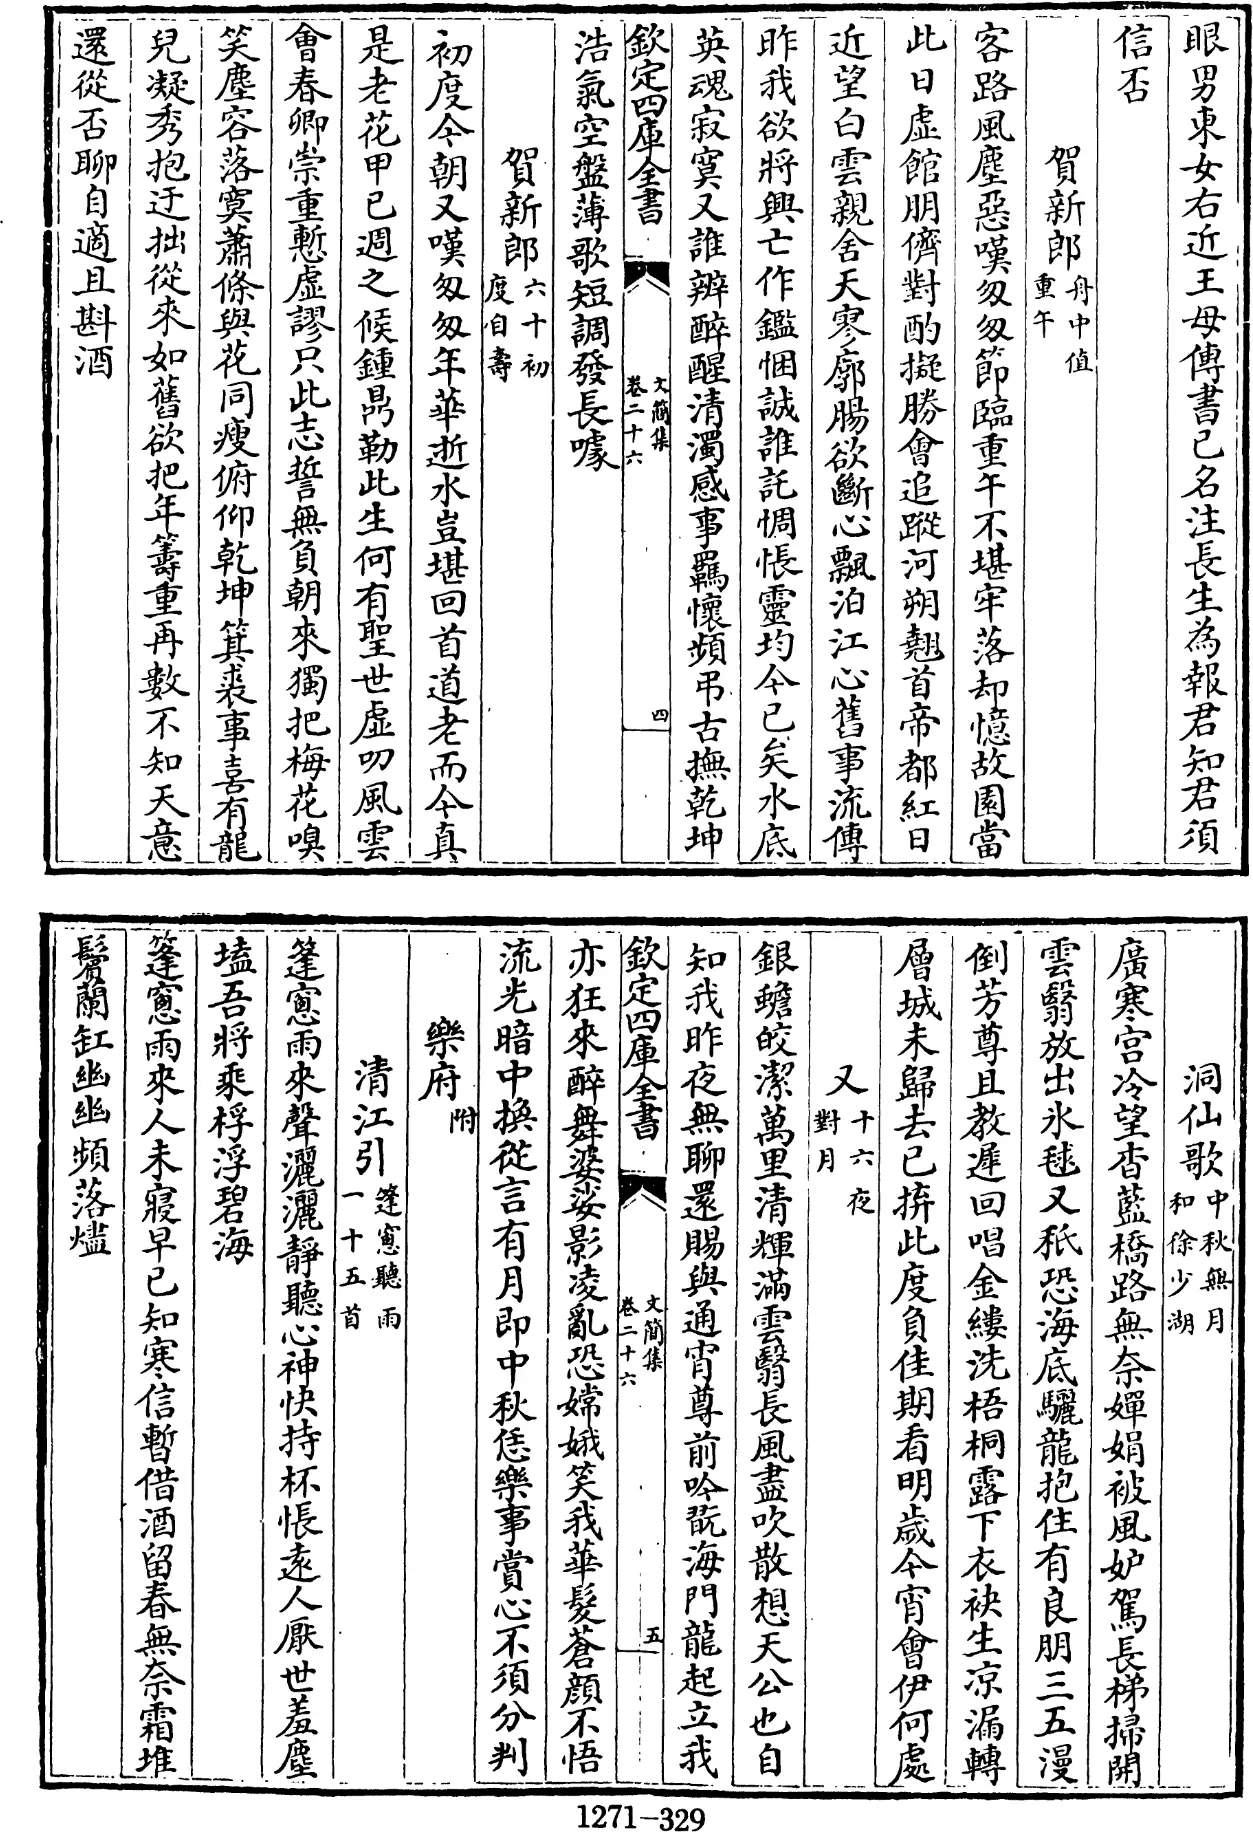 眼男東女右近王母傳書已名注長生為報君知君須
信否
賀新郎舟中值重午
客路風塵惡嘆匆匆節臨重午不堪牢落却憶故園當
此日虛館朋儕對酌擬勝會追蹤河朔翹首帝都紅日
近望白雲親舍天寒廓腸欲斷心飄泊江心舊事流傳
昨我欲將興亡作鑑悃誠誰託惆悵靈均今已矣水底
英魂寂寞又誰辨醉醒清濁感事羈懷頻弔古撫乾坤
欽定四庫全書
文簡集
卷二十六
四
浩氣空盤薄歌短調發長噱
賀新郎六十初度自壽
初度今朝又嘆匆匆年華逝水豈堪回首道老而今真
是老花甲已週之候鍾鼎勒此生何有聖世虛叨風雲
會春卿崇重慙虛謬只此志誓無負朝來獨把梅花嗅
笑塵容落寞蕭條與花同瘦俯仰乾坤箕裘事喜有龍
兒凝秀抱迂拙從來如舊欲把年籌重再數不知天意
還從否聊自適且斟酒
洞仙歌中秋無月和徐少湖
廣寒宮冷望杳藍橋路無奈嬋娟被風妒駕長梯掃開
雲翳放出氷毬又秖恐海底驪龍抱住有良朋三五漫
倒芳尊且教遲回唱金縷洗梧桐露下衣袂生凉漏轉
層城未歸去已拚此度負佳期看明歲今宵會伊何處
又十六夜對月
銀蟾皎潔萬里清輝滿雲翳長風盡吹散想天公也自
知我昨夜無聊還賜與通宵尊前吟翫海門龍起立我
欽定四庫全書
文簡集
卷二十六
五
亦狂來醉舞婆娑影凌亂恐嫦娥笑我華髮蒼顏不悟
流光暗中換從言有月即中秋恁樂事賞心不須分判
樂府附
清江引篷窻聽雨一十五首
篷窻雨來聲灑灑靜聽心神快持杯悵遠人厭世羞塵
壒吾將乘桴浮碧海
篷窻雨來人未寢早已知寒信暫借酒留春無奈霜堆
鬢蘭缸幽幽頻落燼
1271-329